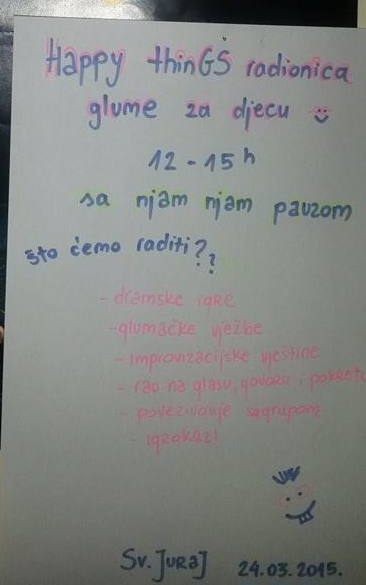 Happy thinGS radionica
glume za djecu
12-15h
sa njam njam pauzom
što ćemo raditi??
- dramske igre
- glumačke vježbe
- improvizacijske vještine
- rad na glasu, govoru i pokretu
- povezivanje sa grupom
- igrokazi
Sv. Juraj 24.03.2015.